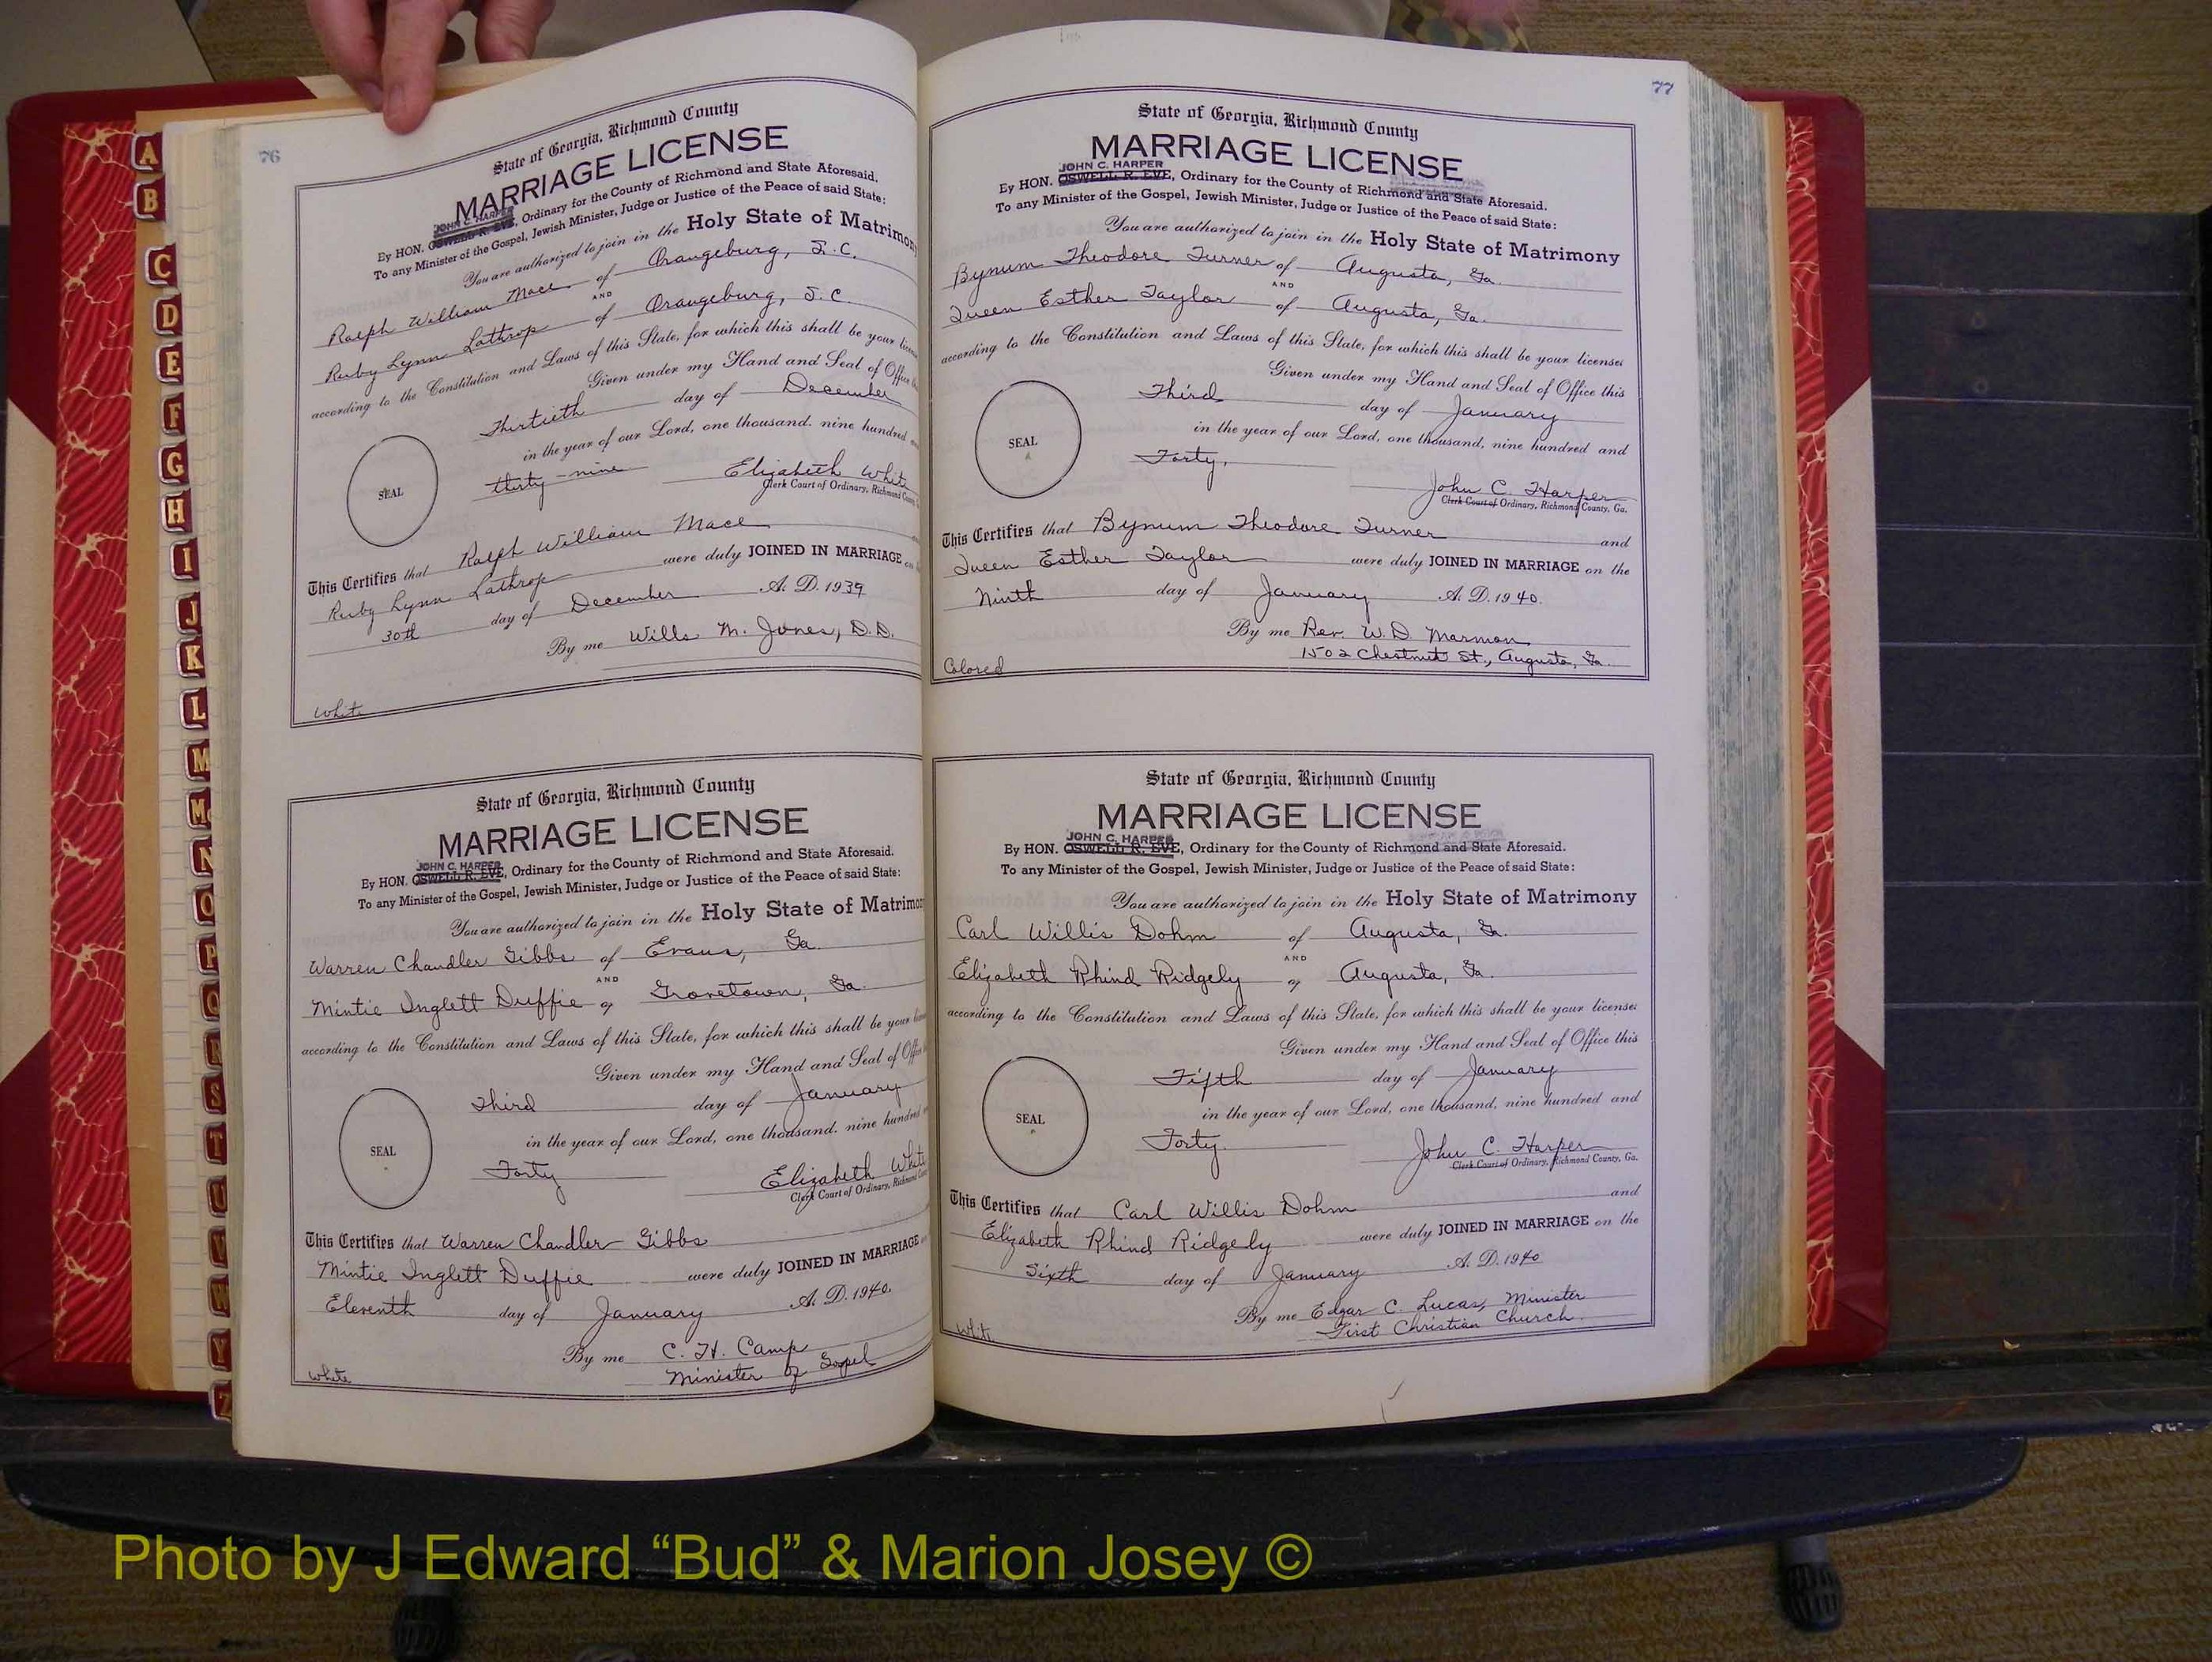 A
B
C
D
E
F
G
H
I
J
K
L
M
Mc
N
O
P
Q
R
S
T
U
V
W
Y
Z
76
State of Georgia, Richmond County
MARRIAGE LICENSE
JOHN C. HARPER
By HON. OSWELL R. EVE, Ordinary for the County of Richmond and State Aforesaid.
To any Minister of the Gospel, Jewish Minister, Judge or Justice of the Peace of said State:
You are authorized to join in the Holy State of Matrimony
Ralph William Mace of Orangeburg, S.C.
AND
Ruby Lynn Lathrop of Orangeburg, S.C.
according to the Constitution and Laws of this State, for which this shall be your
Given under my Hand and Seal of Office
Thirtieth day of December
in the year of our Lord, one thousand. nine hundred
thirty-nine Elizabeth White
SEAL
Clerk Court of Ordinary, Richmond County
This Certifies that Ralph William Mace
Ruby Lynn Lathrop were duly JOINED IN MARRIAGE on
30th day of December A. D. 1939
By me Wills M. Jones, D.D.
White
State of Georgia, Richmond County
MARRIAGE LICENSE
JOHN C. HARPER
By HON. OSWELL R. EVE, Ordinary for the County of Richmond and State Aforesaid.
To any Minister of the Gospel, Jewish Minister, Judge or Justice of the Peace of said State:
You are authorized to join in the Holy State of Matrimon
Warren Chandler Gibbs of Evans, Ga.
AND
Mintie Inglett Duffie of Grovetown, Ga.
according to the Constitution and Laws of this State, for which this shall be your
Given under my Hand and Seal of Office
Third day of January
in the year of our Lord, one thousand. nine hundred
SEAL
Forty Elizabeth White
Clerk Court of Ordinary, Richmond
This Certifies that Warren Chandler Gibbs
Mintie Inglett Duffie were duly JOINED IN MARRIAGE
Eleventh day of January A. D. 1940.
By me C. H. Camp
Minister of Gospel
White
77
State of Georgia, Richmond County
MARRIAGE LICENSE
JOHN C. HARPER
By HON. OSWELL R. EVE, Ordinary for the County of Richmond and State Aforesaid.
To any Minister of the Gospel, Jewish Minister, Judge or Justice of the Peace of said State:
You are authorized to join in the Holy State of Matrimony
Bynum Theodore Turner of Augusta, Ga.
AND
Queen Esther Taylor of Augusta, Ga.
according to the Constitution and Laws of this State, for which this shall be your license:
Given under my Hand and Seal of Office this
Third day of January
in the year of our Lord, one thousand, nine hundred and
SEAL
Forty. John C. Harper
Clerk Court of Ordinary, Richmond County, Ga.
This Certifies that Bynum Theodore Turner and
Queen Esther Taylor were duly JOINED IN MARRIAGE on the
Ninth day of January A. D. 1940.
By me Rev. W. D. Marmon
1502 Chestnut St., Augusta, Ga.
Colored
State of Georgia, Richmond County
MARRIAGE LICENSE
JOHN C. HARPER
By HON. OSWELL R. EVE, Ordinary for the County of Richmond and State Aforesaid.
To any Minister of the Gospel, Jewish Minister, Judge or Justice of the Peace of said State:
You are authorized to join in the Holy State of Matrimony
Carl Willis Dohm of Augusta, Ga.
AND
Elizabeth Rhind Ridgely of Augusta, Ga.
according to the Constitution and Laws of this State, for which this shall be your license:
Given under my Hand and Seal of Office this
Fifth day of January
in the year of our Lord, one thousand, nine hundred and
SEAL
Forty. John C. Harper
Clerk Court of Ordinary, Richmond County, Ga.
This Certifies that Carl Willis Dohm and
Elizabeth Rhind Ridgely were duly JOINED IN MARRIAGE on the
Sixth day of January A. D. 1940
By me Edgar C. Lucas, Minister
First Christian Church.
White
Photo by J Edward “Bud” & Marion Josey ©